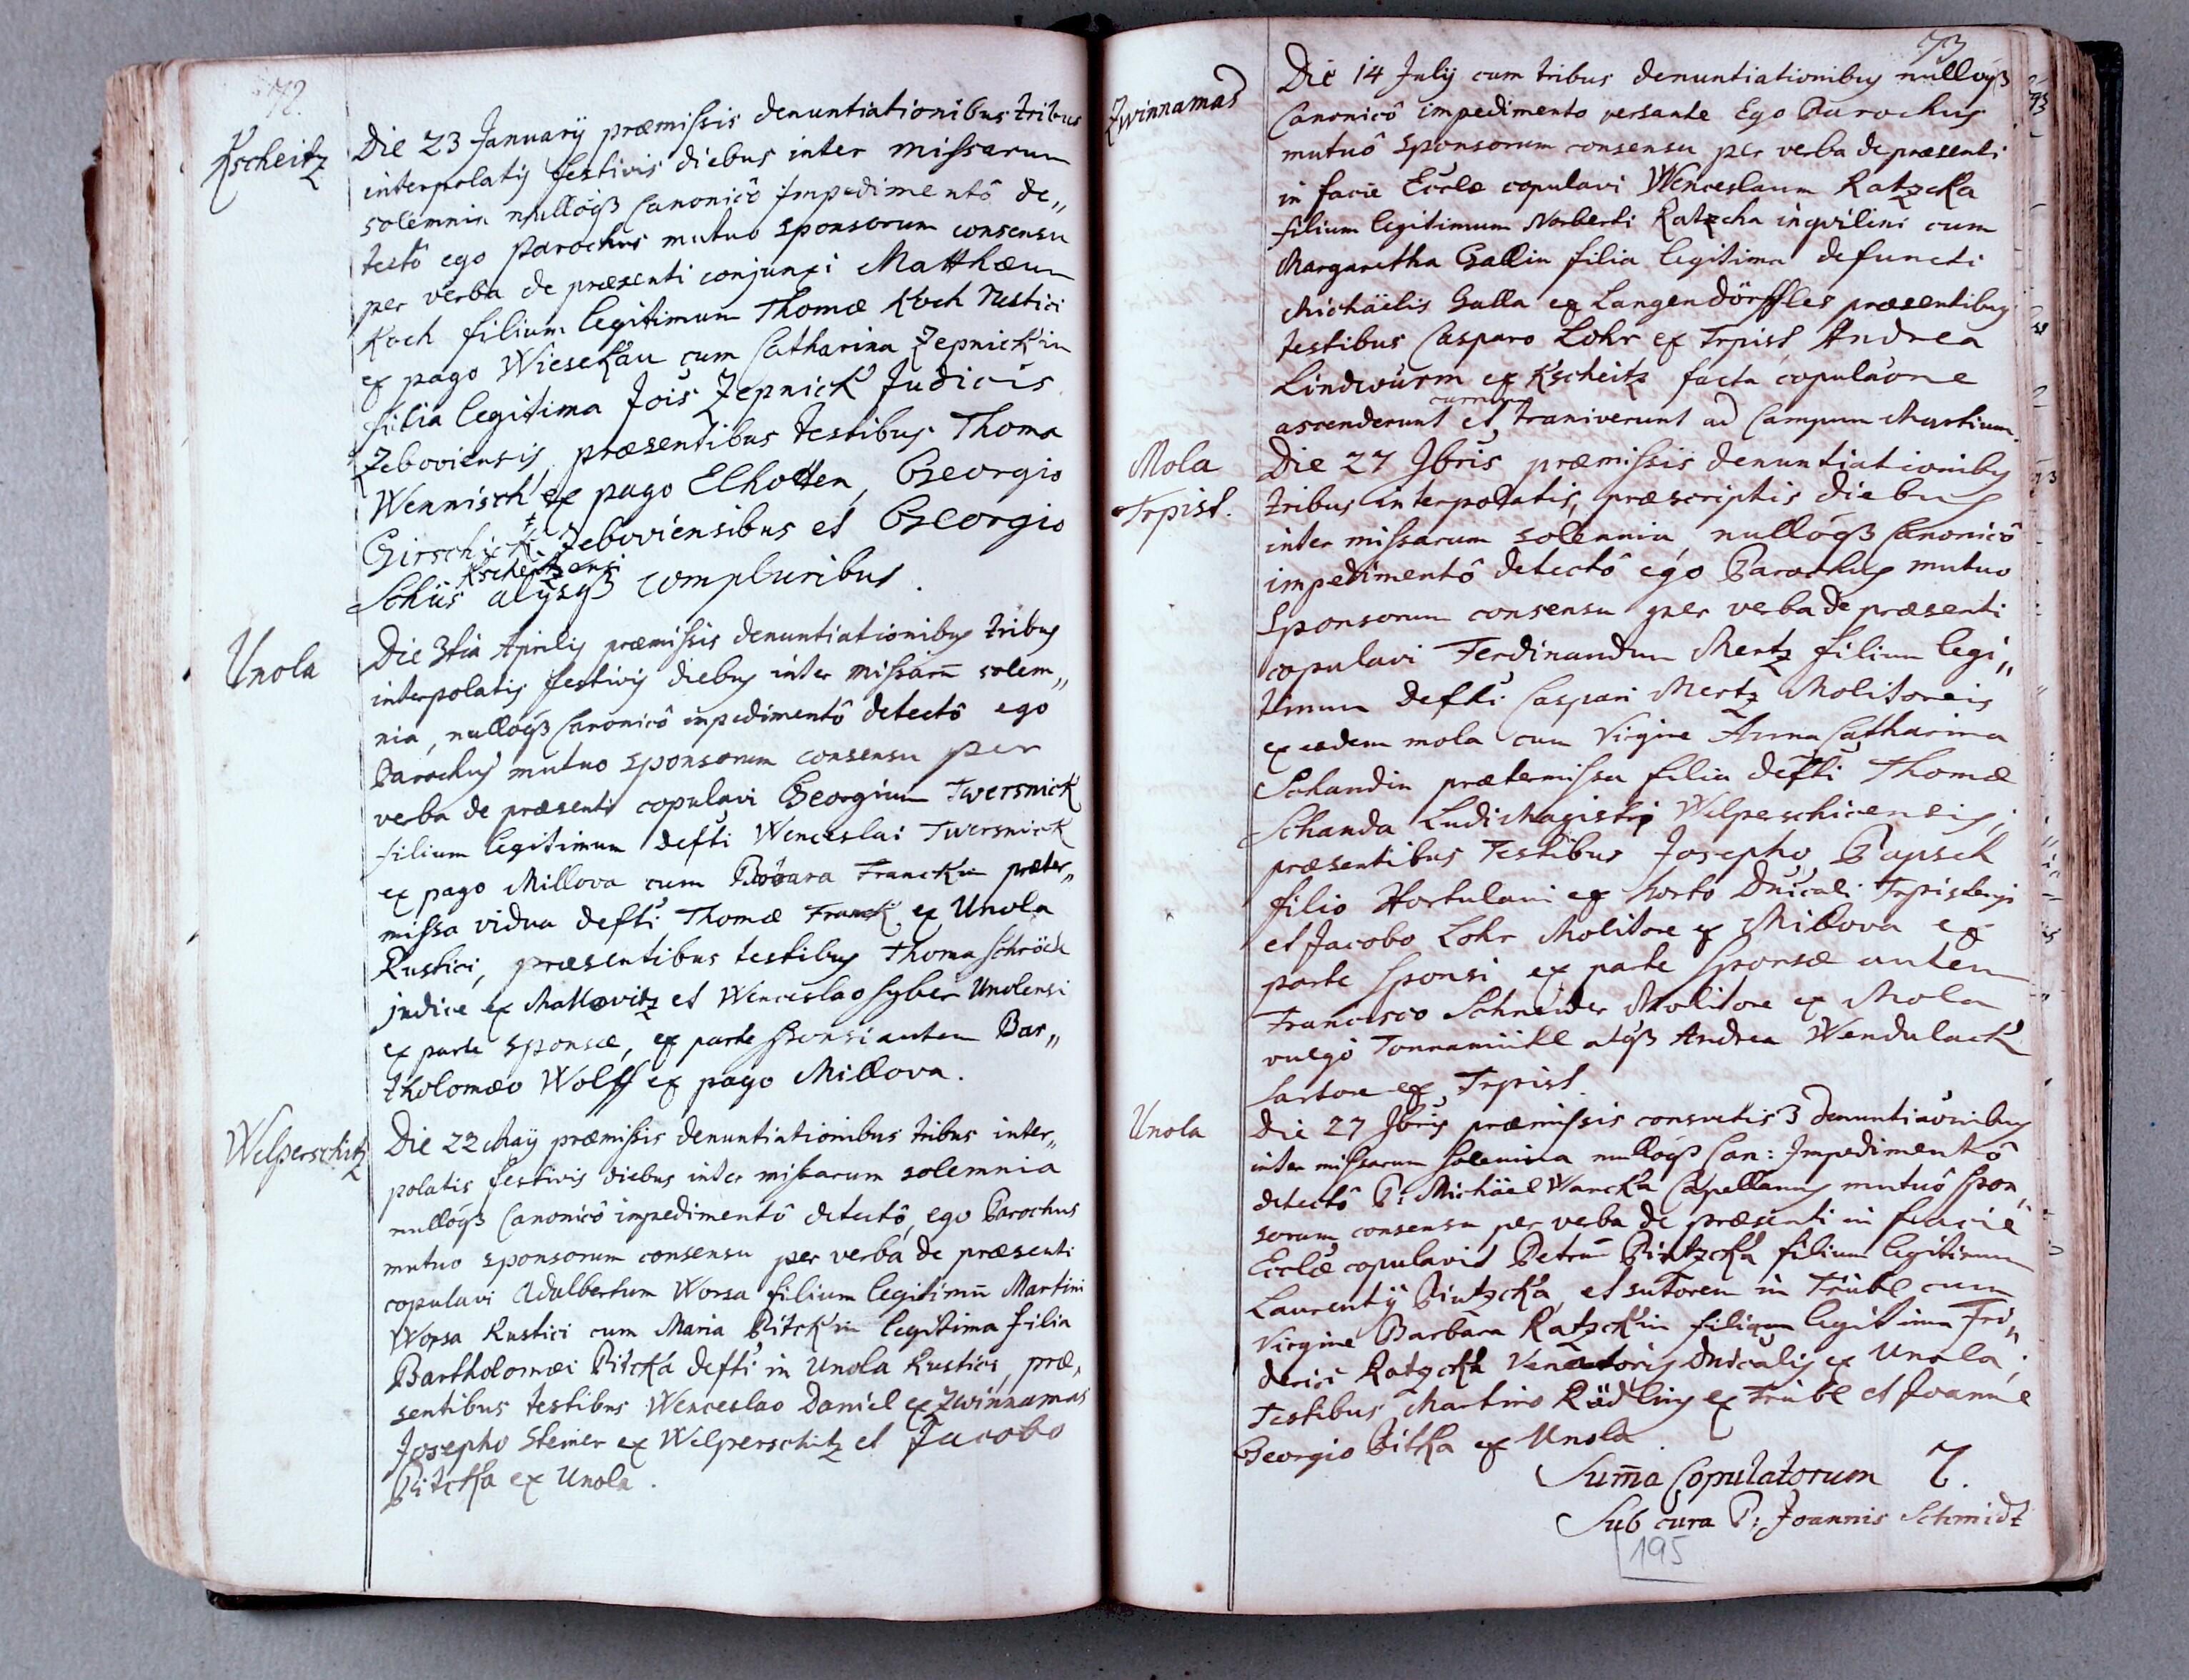 72.
Kscheitz
Die 23 Januarÿ præmissis denuntiationibus tribus
interpolatis festivis diebus inter missarum
solemnia nullóqꝫ Canonicô Impedimentô de„
tectô ego Parochus mutuo sponsorum consensu
per verba de præsenti conjunxi Matthæum
Koch filium legitimum Thomæ Koch Rustici
ex pago Wiesekau cum Catharina Zepnickin
filia legitima Jois Zepnick Judicis
Zeboviensis, præsentibus testibus Thoma
Wennisch ex pago Elhotten, Georgio
Girschick Zeboviensibus et Georgio
Kscheitzensi
Schiis alÿsqꝫ compluribus.
Unola
Die 3tia Aprilis præmissis denuntiationibus tribus
interpolatis festivis diebus inter missarū solem„
nia, nullóqꝫ Canonicô impedimentô detectô ego
Parochus mutuo sponsorum consensu per
verba de præsenti copulavi Georgium Twersnick
filium legitimum defti Wenceslai Twersnick
ex pago Millova cum Franckin præter„
missa vidua defti Thomæ Franck ex Unola
Rustici, præsentibus testibus Thoma Schröck
judice ex et Wenceslao Syber Unolensi
ex parte sponsæ, ex parte sponsi autem Bar„
tholomæo Wolff ex pago Millova.
Welperschitz
Die 22 Maÿ præmissis denuntiationibus tribus inter„
polatis festivis diebus inter missarum solemnia
nullóqꝫ Canonicô impedimentô detectô, ego Parochus
mutuo sponsorum consensu per verba de præsenti
copulavi Adalbertum Worsa filium legitimū Martini
Worsa Rustici cum Maria Pitckin legitima filia
Bartholomæi Pitcka defti in Unola Rustici, præ„
sentibus testibus Wenceslao Daniel ex Zwinnamas
Josepho Steiner ex Welperschitz et Jacobo
Pitcka ex Unola.
73
Zwinnamas
Die 14 Julÿ cum tribus denuntiationibus nullóqꝫ
Canonicô impedimento versante Ego Parochus
mutuô sponsorum consensu per verba de præsenti
in facie Ecclæ copulavi Wenceslaum Ratzcka
filium legitimum Norberti Ratzcha inqvilini cum
Margaretha Gallin filia legitima defuncti
Michäelis Galla ex Langendörffles præsentibus
testibus Casparo Lohr ex Trpist, Andrea
Lindwurm ex Kscheitz facta copulaône
currum
ascenderunt et traniverunt ad Campum Martium.
Mola
Trpist.
Die 27 7bris præmissis denuntiationibus
tribus interpolatis, præscriptis diebus
inter missarum solennia nullóqꝫ Canonicô
impedimentô detectô ego Parochus mutuo
Sponsorum consensu per verba de præsenti
copulavi Ferdinandum Mertz filium legi„
timum defti Caspari Mertz Molitoris
ex eadem mola cum Virgine Anna Catharina
Schandin prætermissa filia defti Thomæ
Schanda Ludi Magistri Welperschicensis;
præsentibus Testibus Josepho Papsch
filio Hortulani ex horto Dnicali Trpistensi
et Jacobo Lohr Molitore ex Millova ex
parte sponsi ex parte sponsæ autem
Francisco Schneider Molitore ex Mola
vulgò Tonnamühl atqꝫ Andrea Wendulack
Sartore ex Trpist.
Unola
Die 27 7bris præmissis consvetis 3 denuntiaônibus
inter missarum solemnia nullóqꝫ Can: Impedimentô
detectô P: Michäel Wancka Capellanus mutuô Spon„
sorum consensu per verba de præsenti in facie
Ecclæ copulavit Petrū Pintzcka filium legitimum
Laurentÿ Pintzcka, et sutorem in Trübl cum
Virgine Barbara Ratzckin filiam legitima Fri„
derici Ratzcka Venatoris dnicalis ex Unola;
Testibus Martino Rödling ex Trübl et Joanne
Georgio Pitka ex Unola.
Sum̄a Copulatorum 7.
Sub cura P: Joannis Schmidt
195